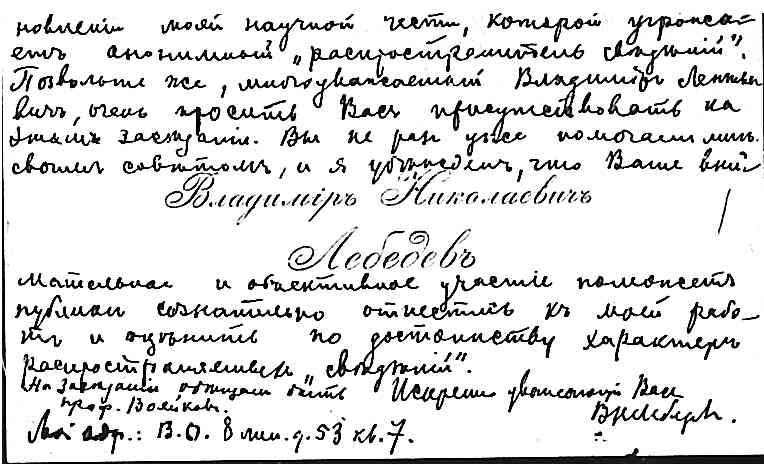 новленіи моей научной чести, которой угрожа-
етъ анонимный „распространитель свѣдѣній“.
Позвольте же, многоуважаемый Владиміръ Ленть
вичъ, очень просить Васъ присутствовать на
этомъ засѣданіи. Вы не раз уже помогали мнѣ
своимъ совѣтомъ, и я убѣжденъ, что Ваше вни-
Владиміръ Николаевичъ
Лебедевъ
мательное и объективное участіе поможетъ
публикѣ сознательно отнестись къ моей рабо-
тѣ и оцѣнить по достоинству характеръ
распространяемыхъ „свѣдѣній“.
На Засѣданіи обѣщали быть Искренно уважающій Васъ
проф. Воейковъ.
Мой адр.: В.О. 8 лин. д. 53 кв. 7.